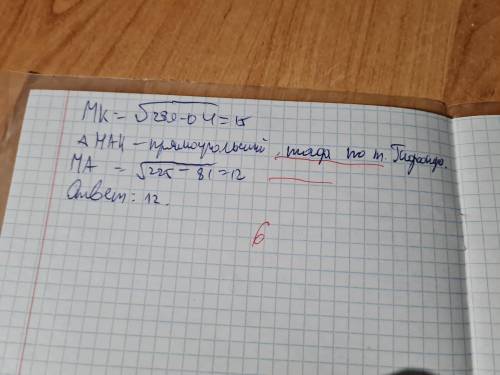 MK = √289-64 = 15
△ MAK - прямоугольный, тогда по т. Пифагора.
MA = √225 - 81 = 12
Ответ: 12.
6